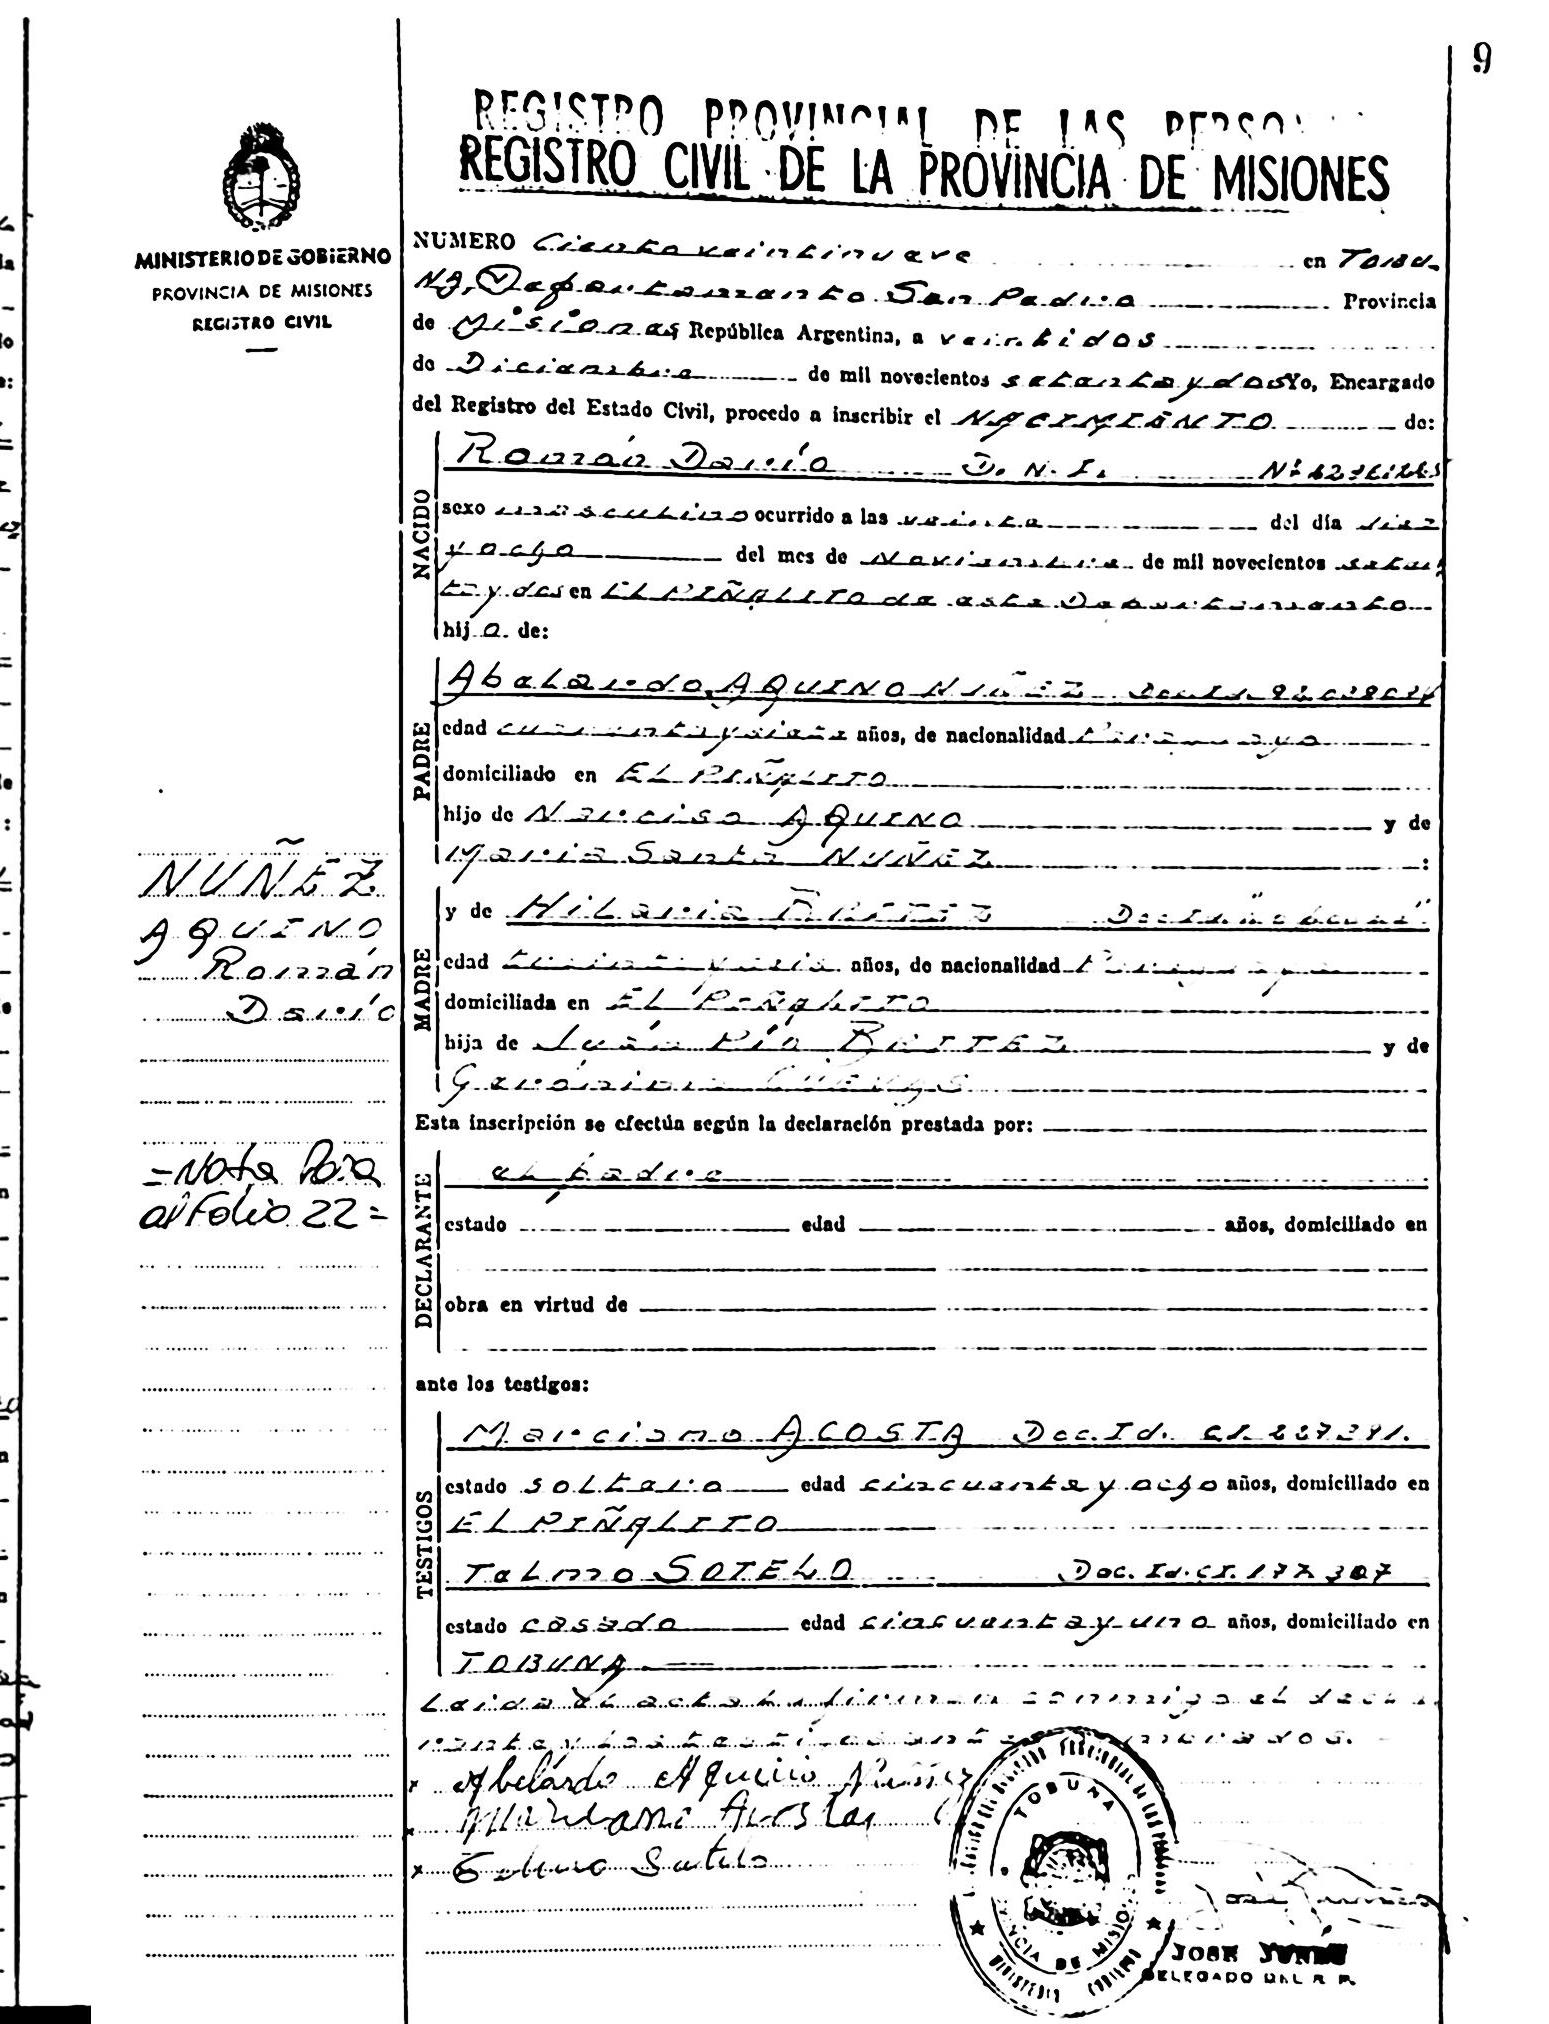 9
REGISTRO PROVINCIAL DE LAS PERSO
REGISTRO CIVIL DE LA PROVINCIA DE MISIONES
MINISTERIO DE GOBIERNO
PROVINCIA DE MISIONES
REGISTRO CIVIL
NUMERO Ciento veintinueve en TOBU-
NA, Departamento San Pedro Provincia
de Misiones República Argentina, a veintidos
de Diciembre de mil novecientos setenta y dos Yo, Encargado
del Registro del Estado Civil, procedo a inscribir el NACIMIENTO de:
NACIDO
Román Darío D. N. I. Nº
sexo masculino ocurrido a las veinte del día diez
y ocho del mes de Noviembre de mil novecientos seten
ta y dos en EL PIÑALITO de este Departamento
hijo de:
PADRE
Abelardo AQUINO NUÑEZ Doc. Id.
edad cuarenta y siete años, de nacionalidad Paraguayo
domiciliado en EL PIÑALITO
hijo de Narciso AQUINO y de
Maria Santa NUÑEZ :
NUÑEZ
AQUINO
Román
Darío
MADRE
y de Hilaria BRITEZ Doc. Id.
edad treinta y seis años, de nacionalidad Paraguaya
domiciliada en EL PIÑALITO
hija de Juán Pío BRITEZ y de
Gerónima
Esta inscripción se efectúa según la declaración prestada por:
=Nota Pasa
al Folio 22=
DECLARANTE
el padre
estado edad años, domiciliado en
obra en virtud de
ante los testigos:
TESTIGOS
Marciano ACOSTA Doc. Id. CI. 227.391.
estado soltero edad cincuenta y ocho años, domiciliado en
EL PIÑALITO
Telmo SOTELO Doc. Id. CI. 177.307
estado casado edad cincuenta y uno años, domiciliado en
TOBUNA
Leida el acta la firman conmigo el decla
rante y los testigos antes nombrados.
x Abelardo Aquino Nuñez
x Marciano Acosta
x Telmo Sotelo
TOBUNA
PROVINCIAL DE LAS PERSONAS
PROVINCIA DE MISIONES
MINISTERIO GOBIERNO
JOSE
DELEGADO DEL R. P.